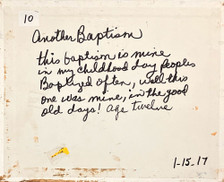 10
Another Baptism
this baptism is mine
in my childhood day peoples
Baptized often, well this
one was mine, in the good
old days! age twelve
1-15.17